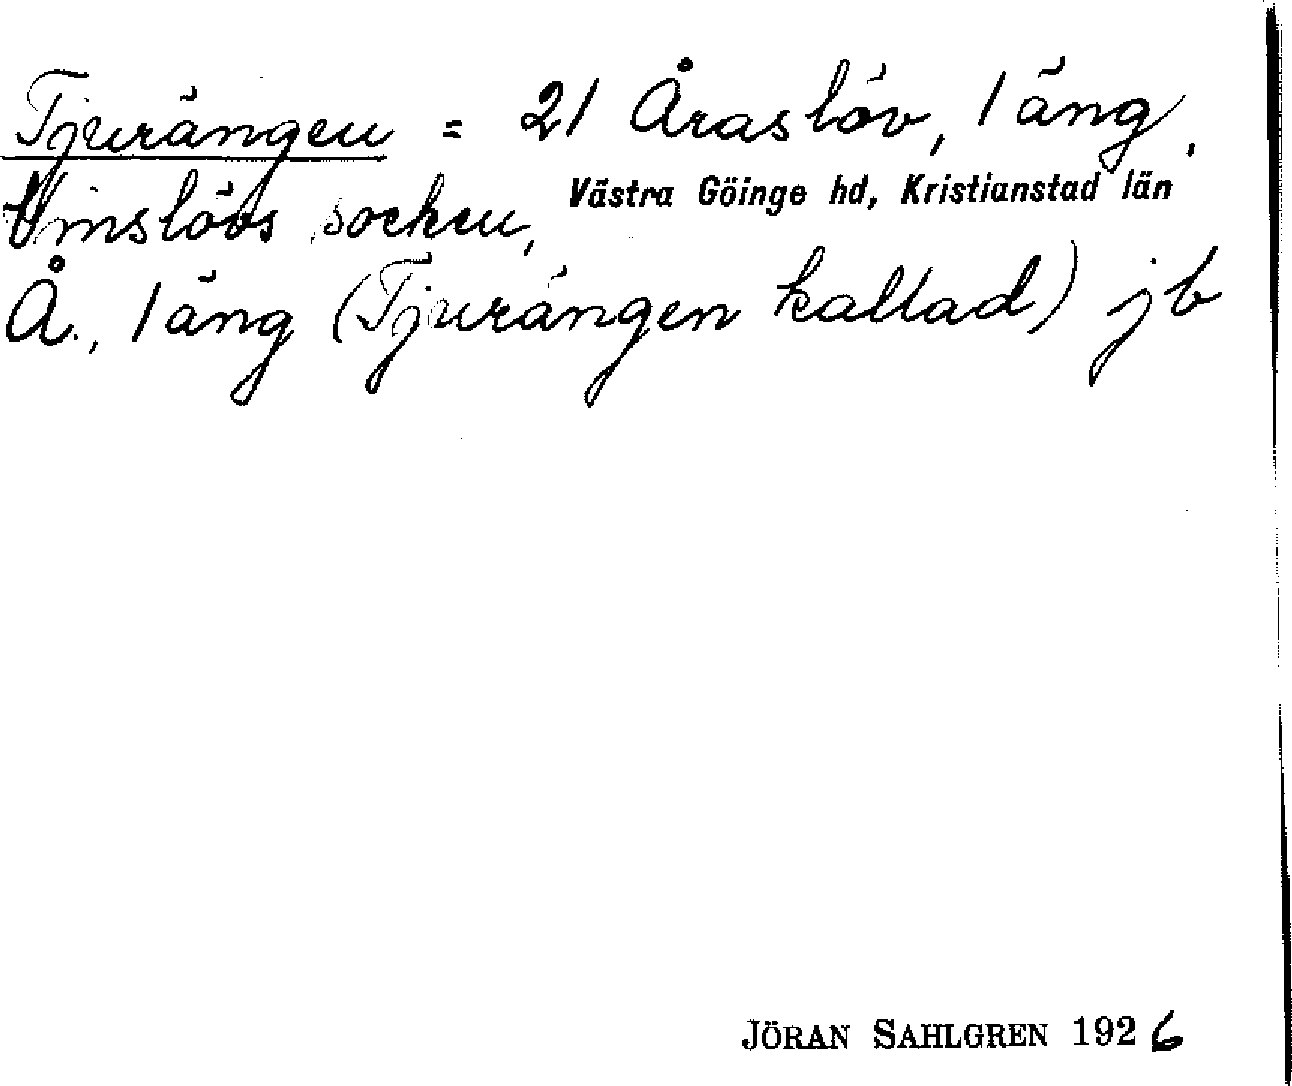 Tjurängen = 21 Åraslöv, 1 äng,
Vinslövs socken, Västra Göinge hd, Kristianstad län
Å., 1 äng (Tjurängen kallad) jb
JÖRAN SAHLGREN 1926